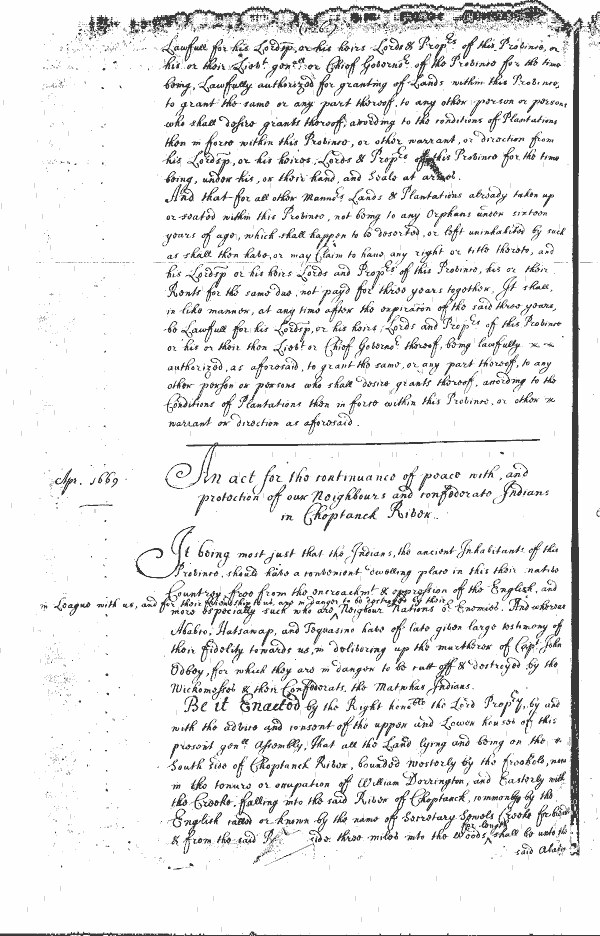 Lawfull for his Lordsp, or his heirs Lords & Prop^rs of this Province, or
his or their Lieu^t gen^ll or Chief Govern^r of the Province for the time
being, Lawfully authorized for granting of Lands within this Province,
to grant the same or any part thereof, to any other person or persons
who shall desire grants thereof, according to the conditions of Plantations
then in force within this Province, or other warrant, or direction from
his Lordsp, or his heires, Lords & Prop^rs of this Province for the time
being, under his, or their hand, and Seale at armes.
And that for all other Mann^rs Lands & Plantations already taken up
or seated within this Province, not being to any Orphans under sixteen
years of age, which shall happen to be deserted, or left uninhabited by such
as shall then have, or may Claim to have, any right or title thereto, and
his Lordsp or his heirs Lords and Prop^rs of this Province, his or their
Rents for the same due, not payd for three years together, It shall,
in like manner, at any time after the expiration of the said three years,
be Lawfull for his Lordsp, or his heirs, Lords and Prop^rs of this Province
or his or their then Lieu^t or Chief Govern^r thereof, being lawfully
authorized, as aforesaid, to grant the same, or any part thereof, to any
other person or persons who shall desire grants thereof, according to the
Conditions of Plantations then in force within this Province, or other
warrant or direction as aforesaid.
Apr. 1669
An act for the continuance of peace with, and
protection of our Neighbours and confederate Indians
in Choptanck River.
It being most just that the Indians, the ancient Inhabitants of this
Province, should have a convenient dwelling place in this their native
Countrey, free from the encroachm^t & oppression of the English, and
in League with us, and for their friendship to us, are in danger to be destroyed by their
more especially such who are ^ Neighbour Nations o^r Enemies. And whereas
Ababco, Hatsawap, and Tequasino have of late given large testimony of
their fidelity towards us, in delivering up the murtherer of Cap^t John
Odbey, for which they are in danger to be cutt off & destroyed by the
Wickomesses & their Confederats, the Matwhas Indians.
Be it Enacted by the Right hon^ble the Lord Prop^ry, by and
with the advice and consent of the upper and Lower houses of this
present gen^ll Assembly, That all the Land lying and being on the
South side of Choptanck River, bounded westerly by the freehold, now
in the tenure or occupation of William Dorrington, and Easterly with
the Creeke, falling into the said River of Choptanck, commonly by the
English called or known by the name of Secretary Sewels Creeke for bounds
for length
& from the said side three miles into the Woods ^ shall be unto the
said Ababco